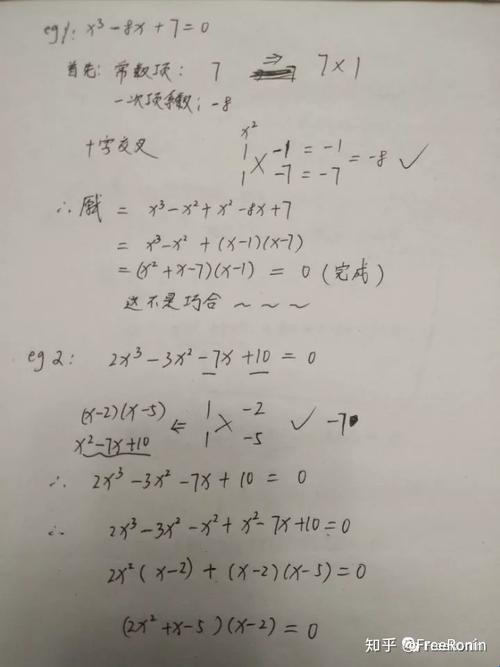 eg1: x³-8x+7=0
首先: 常数项: 7 ⇒ 7×1
一次项系数: -8
十字交叉
x²
1 -1 = -1
× = -8 ✓
1 -7 = -7
∴ 原式 = x³-x²+x²-8x+7
= x³-x²+(x-1)(x-7)
=(x²+x-7)(x-1) = 0 (完成)
这不是巧合~~~
eg2: 2x³-3x²-7x+10=0
(x-2)(x-5) ⇐ 1 × -2 ✓ -7
x²-7x+10 1 -5
∴ 2x³-3x²-7x+10 = 0
∴ 2x³-3x²-x²+x²-7x+10=0
2x²(x-2)+(x-2)(x-5)=0
(2x²+x-5)(x-2)=0
知乎 @FreeRonin